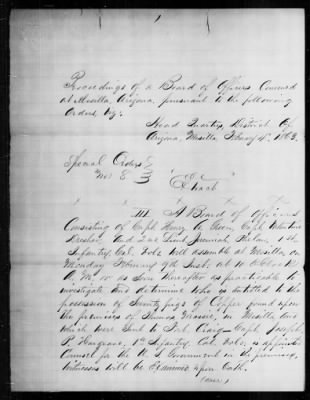 Proceedings of a Board of Officers Convened
at Mesilla, Arizona, pursuant to the following
Orders, viz:
Head Quarters, District Of
Arizona, Mesilla February 4th, 1863.
Special Orders
No 8
Extract
x x x x x
III A Board of Officers
Consisting of Capt Henry A. Green, Capt Valentine
Dresher, And 2nd Lieut Jeremiah Phelan, 1st
Infantry, Cal. Vols will assemble at Mesilla on
Monday February 9th Inst. at 10 O'Clock
A. M. or as soon thereafter as practicable to
investigate and determine who is entitled to the
possession of Seventy pigs of Copper found upon
the premises of Thomas Massie, in Mesilla and
which were sent to Fort Craig — Capt Joseph
P. Hargrave, 1st Infantry, Cal. Vols, is appointed
Counsel for the U. S. Government in the premises,
Witnesses will be Examined upon Oath.
(over)